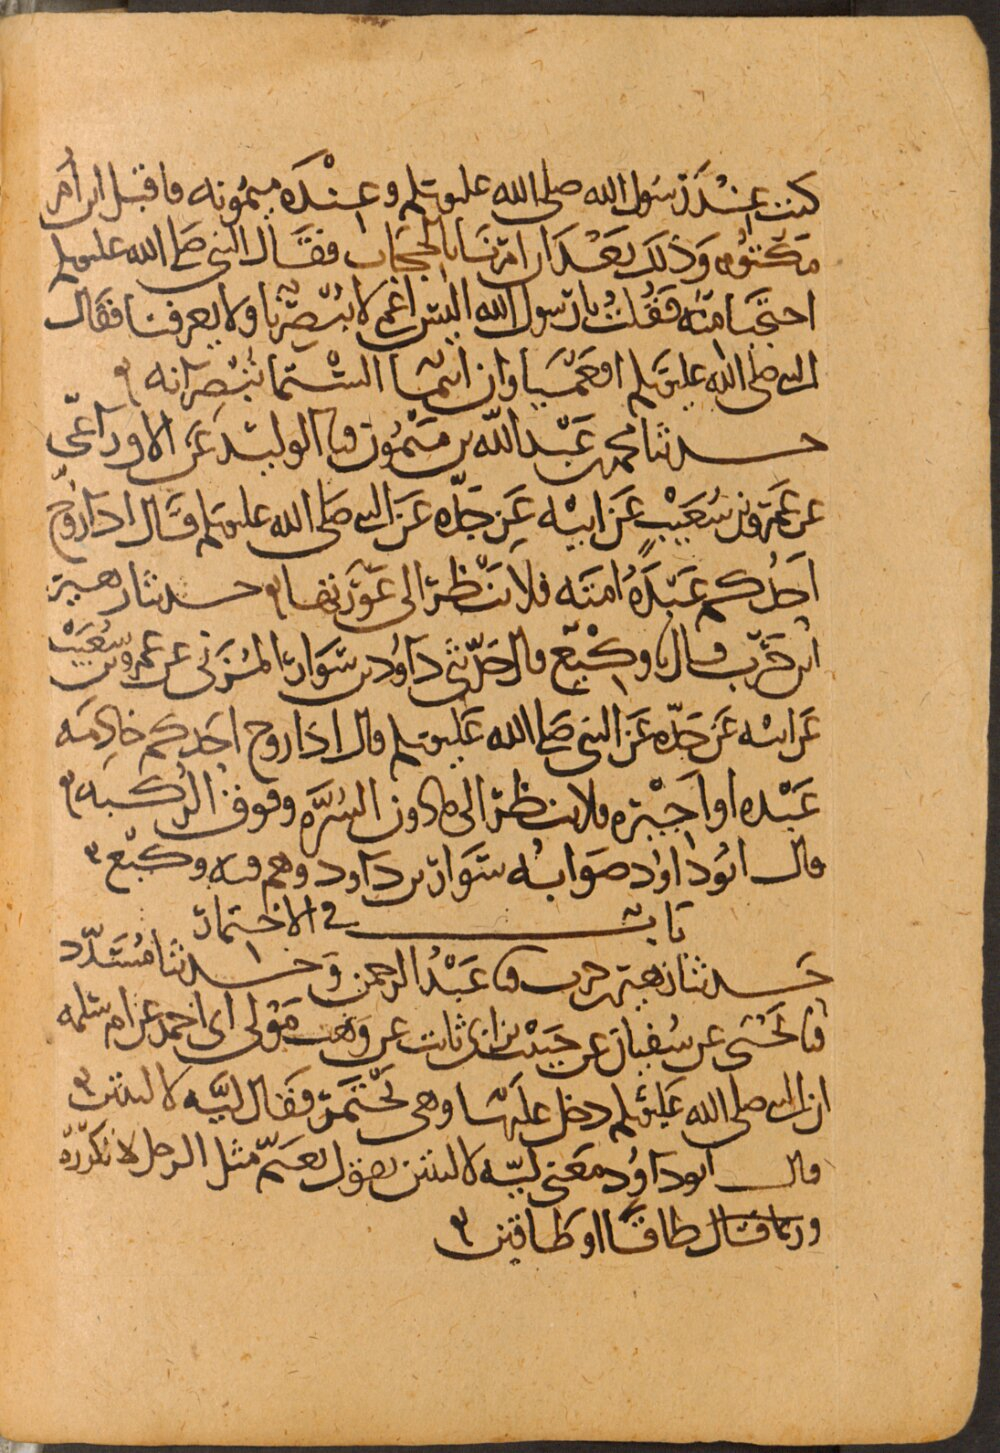 كنت عند رسول الله صلى الله عليه وسلم وعنده ميمونه فاقبل ابن أم
مكتوم وذلك بعد ان امرنا بالحجاب فقال النبي صلى الله عليه وسلم
احتجبا منه فقلت يا رسول الله اليس اعمى لا يبصرنا ولا يعرفنا فقال
النبي صلى الله عليه وسلم افعمياوان انتما الستما تبصرانه
حدثنا محمد بن عبد الله بن ميمون قثا الوليد عن الاوزاعي
عن عمرو بن شعيب عن ابيه عن جده عن النبي صلى الله عليه وسلم قال اذا زوج
احدكم عبده امته فلا ينظر الى عورتها حدثنا زهير
ابن حرب قال نا وكيع قال حدثني داود بن سوار المزني عن عمرو بن شعيب
عن ابيه عن جده عن النبي صلى الله عليه وسلم قال اذا زوج احدكم خادمه
عبده او اجيره فلا ينظر الى ما دون السرة وفوق الركبه
قال ابو داود صوابه سوار بن داود وهم فيه وكيع
باب في الاختمار
حدثنا زهير بن حرب قثا عبد الرحمن وحدثنا مسدد
قثا يحيى عن سفيان عن حبيب بن ابي ثابت عن وهب مولى ابي احمد عن ام سلمه
ان النبي صلى الله عليه وسلم دخل عليها وهي تختمر فقال ليه لا ليتين
قال ابو داود معنى ليه لا ليتين يقول تعتم مثل الرجل لا تكرره
وربما قال طاقا او طاقين